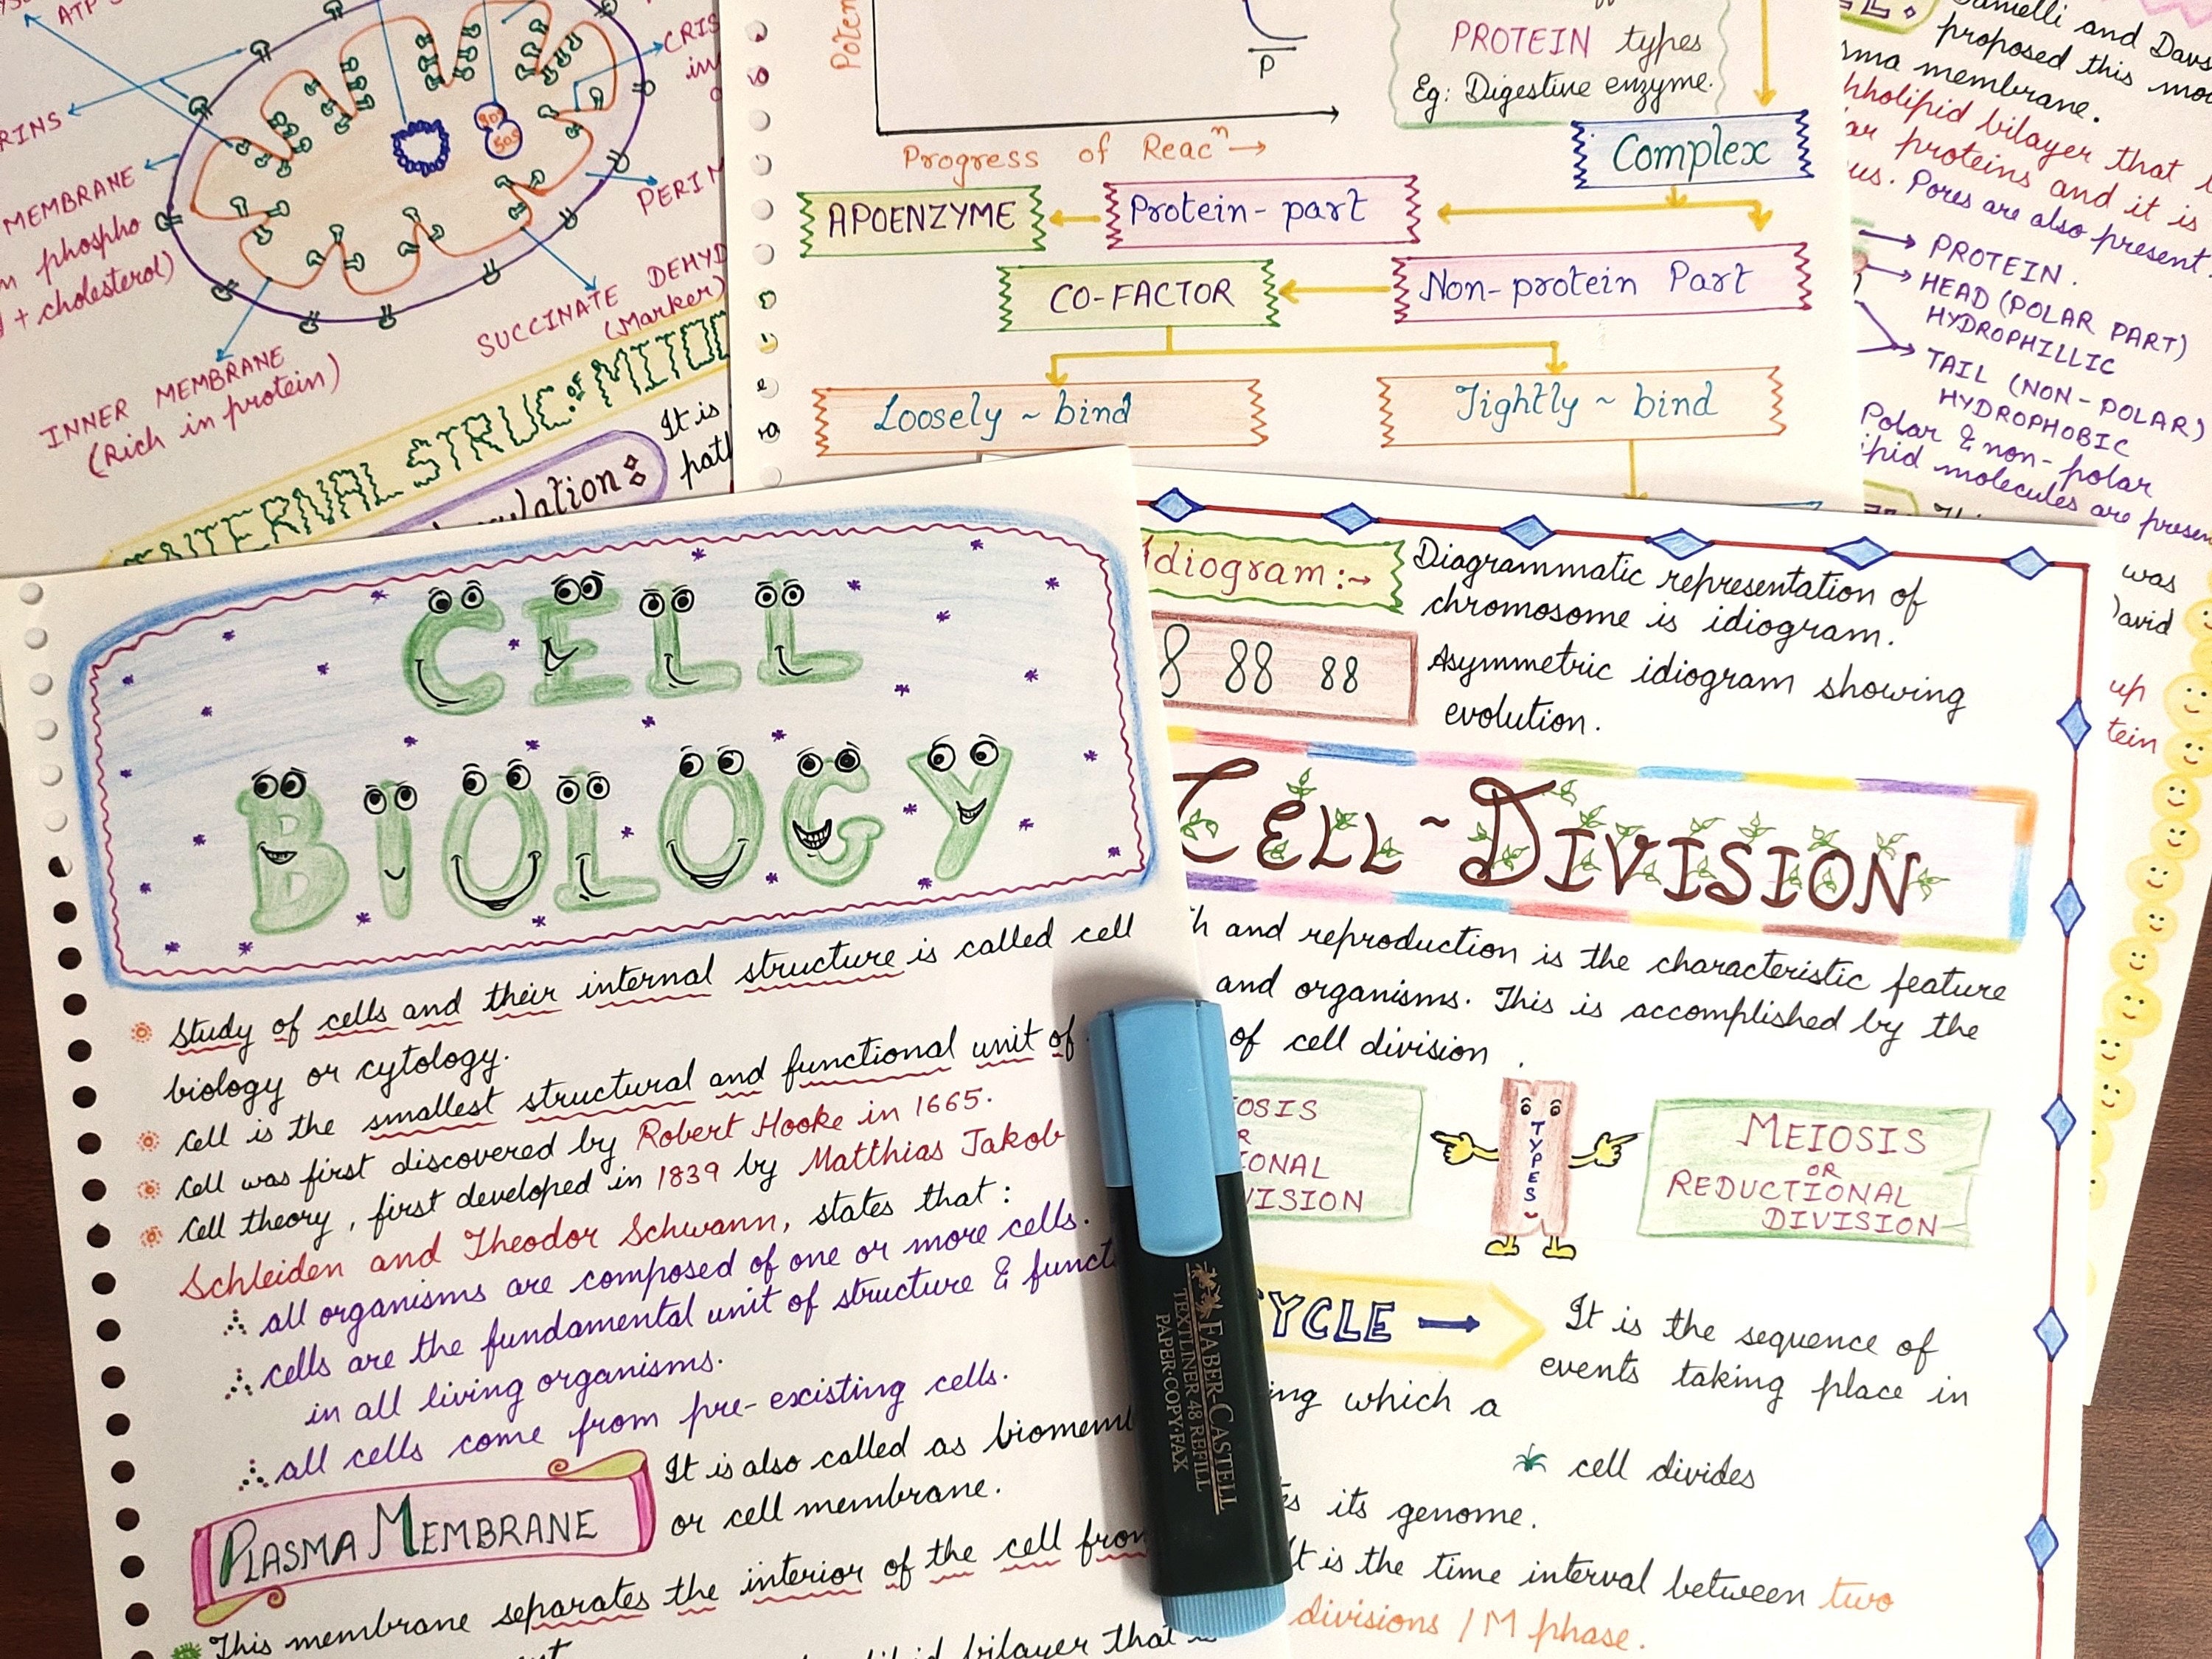 ATP
CRIS
RINS
MEMBRANE
phospho
+ cholesterol)
30S
50S
PERIM
SUCCINATE DEHYD
(Marker)
INNER MEMBRANE
(Rich in protein)
INTERNAL STRUC: of MITO
It is
path
Poten
P
Progress of Reacⁿ →
PROTEIN types
Eg: Digestive enzyme.
Complex
APOENZYME
Protein-part
CO-FACTOR
Non-protein Part
Loosely ~ bind
Tightly ~ bind
Danielli and Davs
proposed this mo
sma membrane.
hholipid bilayer that
ar proteins and it is
us. Pores are also present.
PROTEIN.
HEAD (POLAR PART)
HYDROPHILLIC
TAIL (NON-POLAR)
HYDROPHOBIC
Polar & non-polar
ipid molecules are presen
was
David
up
tein
CELL
BIOLOGY
Study of cells and their internal structure is called cell
biology or cytology.
Cell is the smallest structural and functional unit of
Cell was first discovered by Robert Hooke in 1665.
Cell theory, first developed in 1839 by Matthias Jakob
Schleiden and Theodor Schwann, states that :
all organisms are composed of one or more cells.
cells are the fundamental unit of structure & funct
in all living organisms.
all cells come from pre-existing cells.
PLASMA MEMBRANE
It is also called as biomemb
or cell membrane.
This membrane separates the interior of the cell from
bilayer that
Idiogram :→
Diagrammatic representation of
chromosome is idiogram.
8 88 88
Asymmetric idiogram showing
evolution.
CELL ~ DIVISION
h and reproduction is the characteristic feature
and organisms. This is accomplished by the
of cell division.
OSIS
R
IONAL
VISION
TYPES
MEIOSIS
OR
REDUCTIONAL
DIVISION
YCLE →
It is the sequence of
events taking place in
ing which a
cell divides
its genome.
It is the time interval between two
divisions / M phase.
FABER-CASTELL
TEXTLINER 48 REFILL
PAPER·COPY·FAX